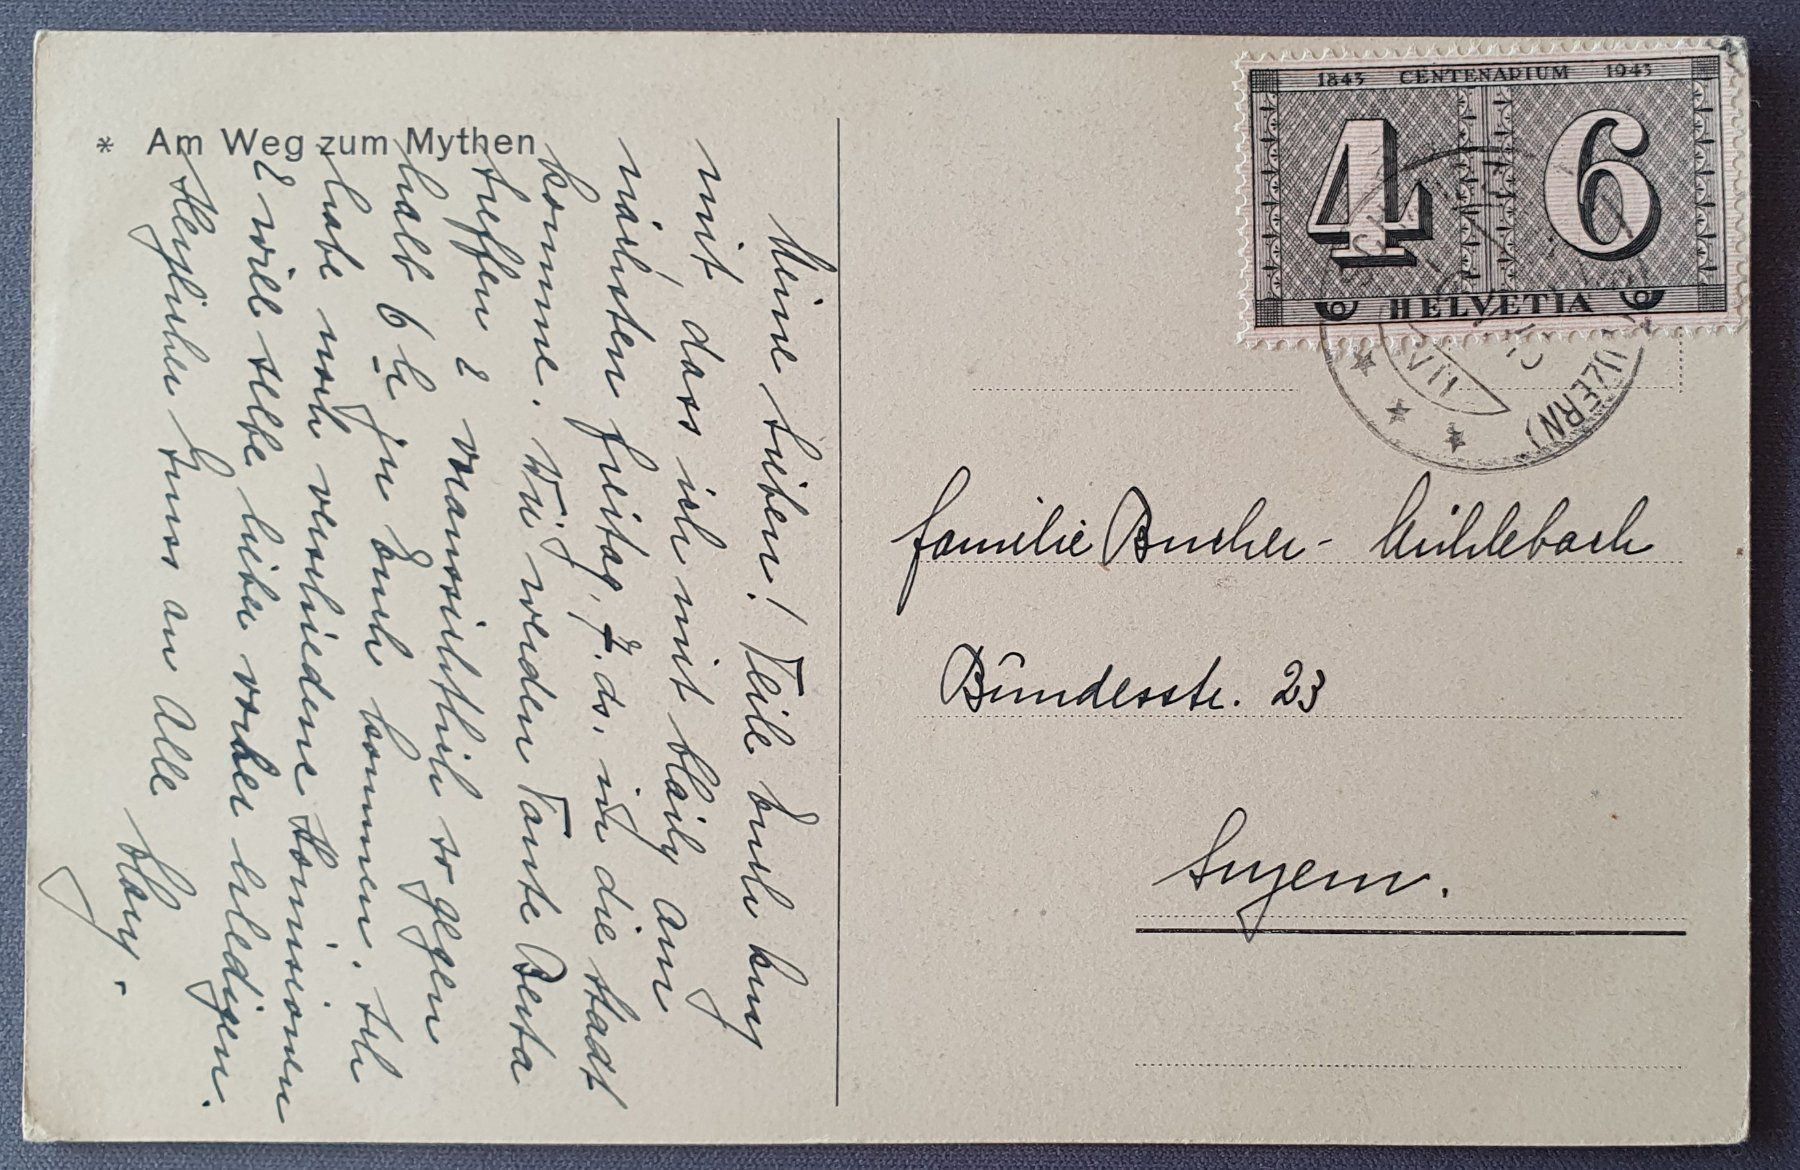 * Am Weg zum Mythen
Meine Lieben! Teile Euch kurz
mit, dass ich mit
nächsten Freitag, 7. ds. in die Stadt
komme. Wir werden Tante Berta
treffen & voraussichtlich so gegen
halb 6 h zu Euch kommen. Ich
habe noch verschiedene Komisionen
& will selbe lieber vorher erledigen.
Herzlichen Gruss an Alle
1843 CENTENARIUM 1943
4 6
HELVETIA
(LUZERN)
Familie Bucher - Mühlebach
Bundesstr. 23
Luzern.